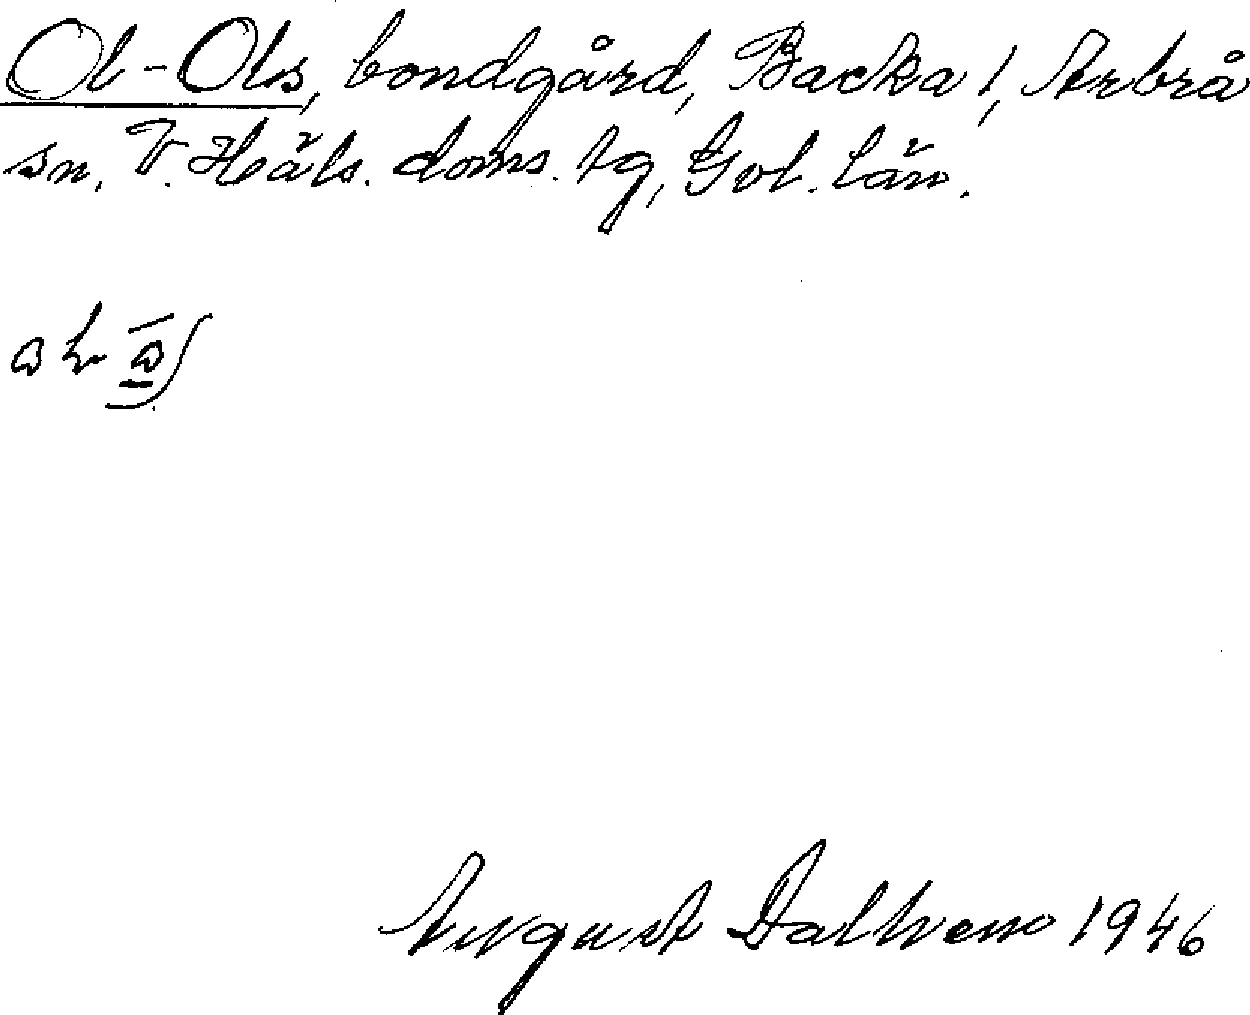 Ol-Ols, bondgård, Backa 1, Arbrå
sn. V. Häls. doms. tg, Gvl. län.
August Dalhem 1946